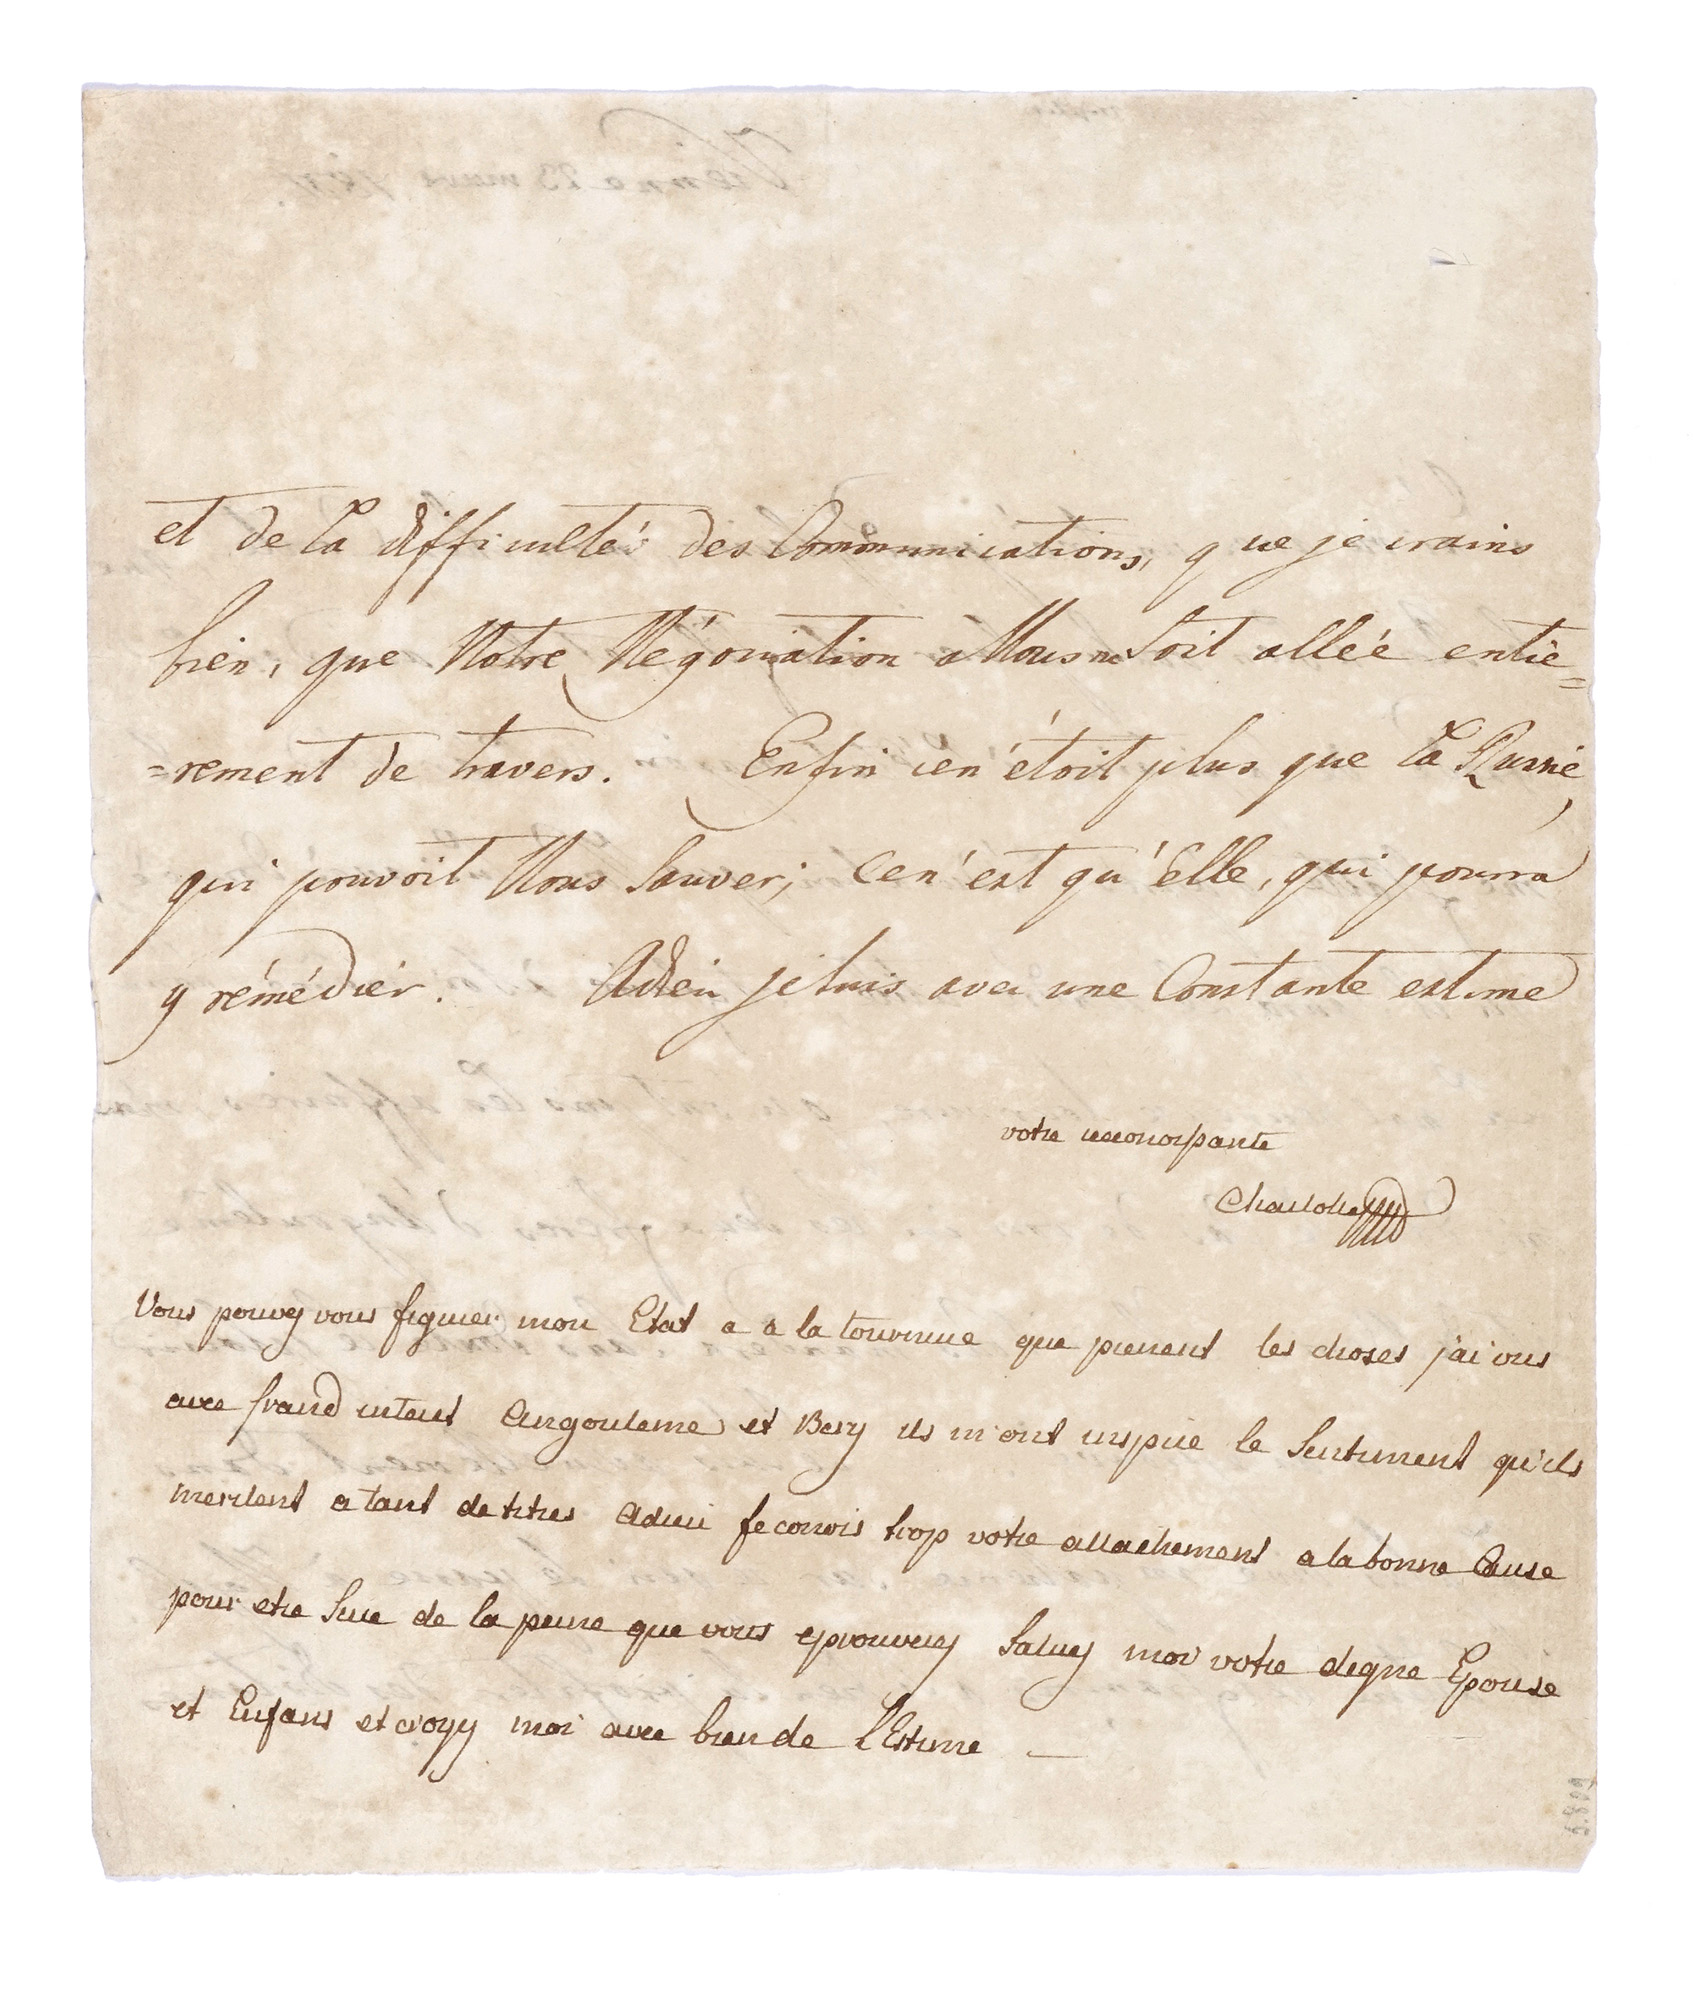 et de la difficultés des Communications, que je crains
bien, que Notre Négociation à Nous ne Soit alléé entie=
=rement de travers. Enfin ce n'étoit plus que la Russie,
qui pouvoit Nous Sauver; ce n'est qu'Elle, qui pourra
y rémédier. Adieu je suis avec une Constante estime
votre reconoisante
Charlotte
Vous pouvez vous figurer mon Etat a a la tournure que prenent les choses j'ai vus
avec grand interest Angouleme et Bery ils m'ont inspire le Sentiment qu'ils
meritent a tant de titres Adieu je conois trop votre attachement a la bonne Cause
pour etre Sure de la peine que vous eprouverez Saluez moi votre digne Epouse
et Enfans et croyez moi avec bien de l'Estime —